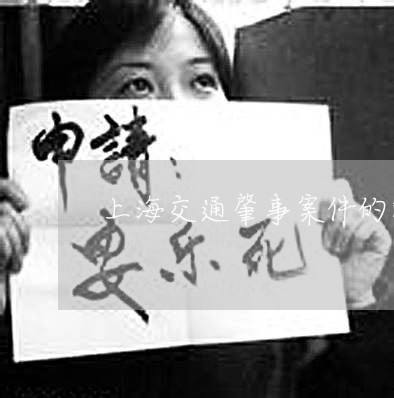 申請：
上海交通肇事案件的
安乐死